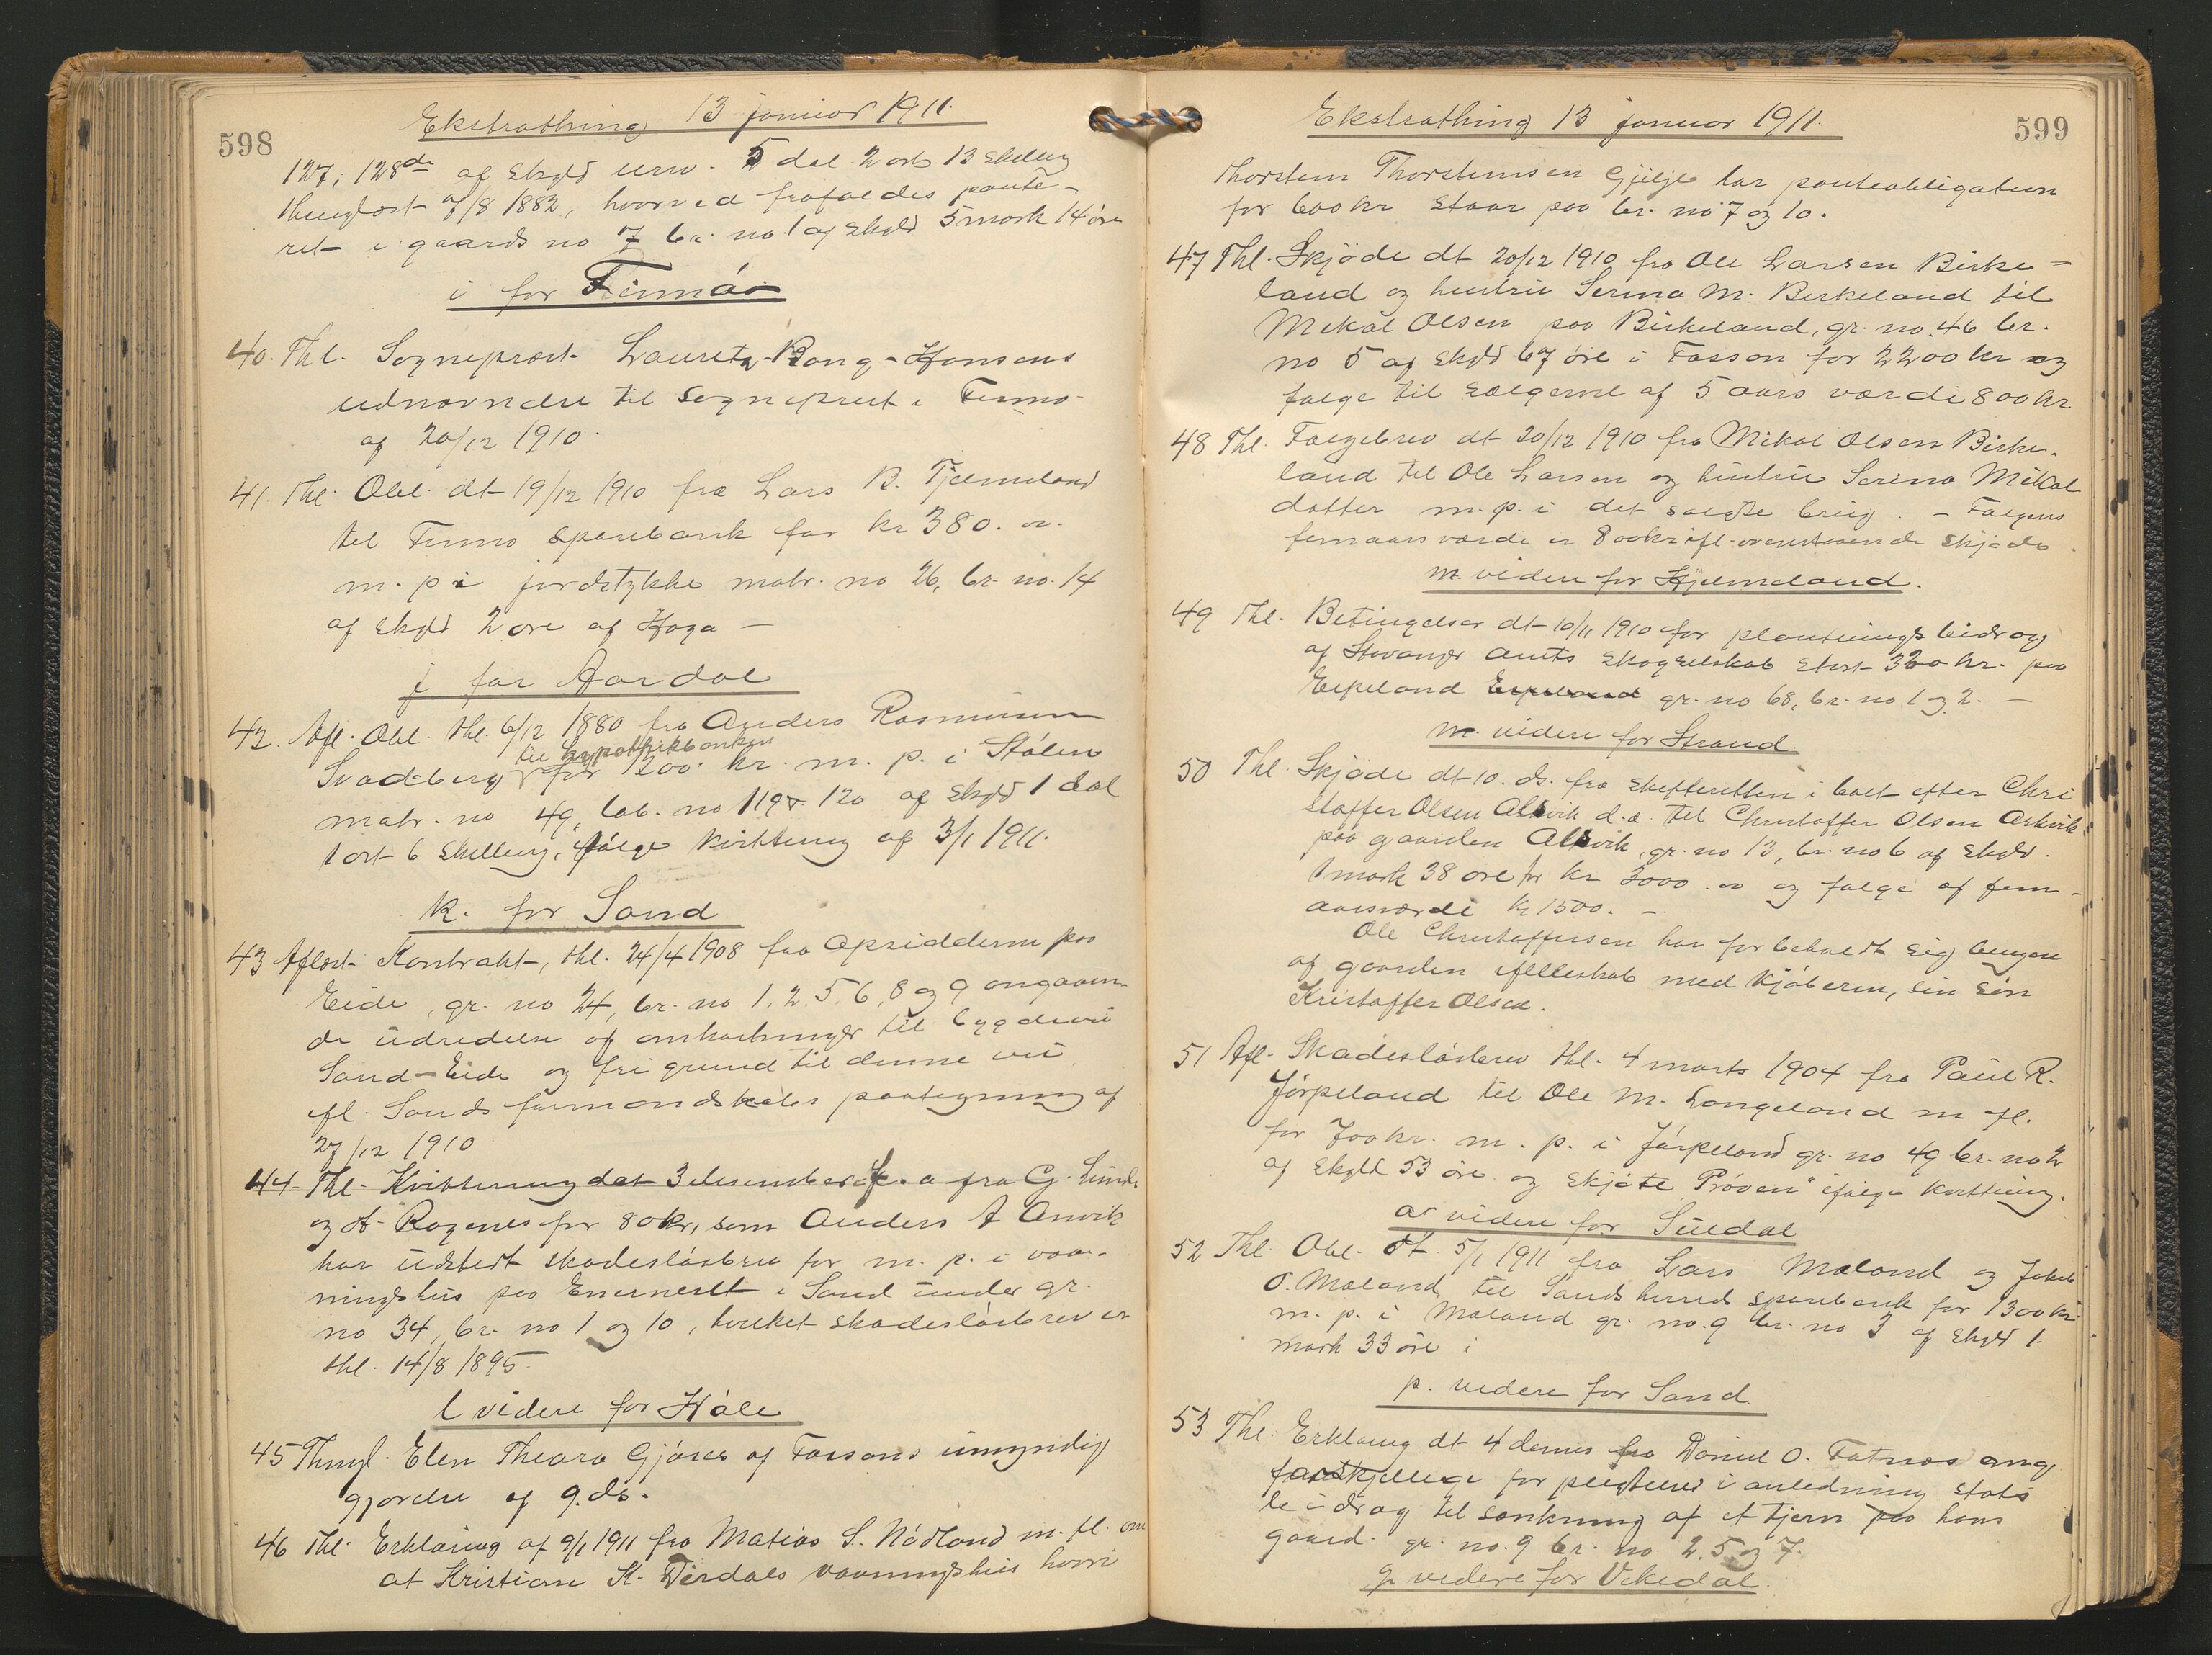 598
Ekstrathing 13 januar 1911.
127, 128de af skyld urev. 5 dal. 2 ort 13 skilling
thinglæst 7/8 1882, hvorved frafaldes pante-
ret i gaards no 7 br. no 1 af skyld 5 mark 14 øre
i for Finnö
40. Thl. Sogneprest Lauritz Bang-Hansens
udnævnelse til sogneprest i Finnø
af 20/12 1910.
41. Thl. Obl. dt 19/12 1910 fra Lars B. Fjelmeland
til Finnø sparebank for kr 380.00
m. p. i jordstykke matr. no 26, br. no. 14
af skyld 2 øre af Haga —
j for Aardal
42. Afl. Obl. thl. 6/12 1880 fra Anders Rasmussen
til hypothekbanken
Svadberg for 1200 kr. m. p. i Stölen
matr. no 49, løb. no 119 & 120 af skyld 1 dal
1 ort 6 skilling, ifölge kvittering af 3/1 1911.
k. for Sand
43 Aflæst Kontrakt, thl. 24/4 1908 fra opsidderne paa
Eide, gr. no 24, br. no 1, 2, 5, 6, 8 og 9 angaaen-
de udredelse af omkostninger til bygdevei
Sand-Eide og fri grund til denne vei
ifl. Sands formandskabs paategning af
27/12 1910
44 Thl. Kvittering dat 3 desember f. a. fra G. Lunde
og A. Rogenes for 80 kr, som Anders A Anvik
har udstedt skadeslösbrev for m. p. i vaa-
ningshus paa Enernestet i Sand under gr.
no 34, br. no 1 og 10, hvilket skadeslösbrev er
thl. 14/8 1895.
l videre for Höle
45 Thingl. Elen Theora Gjöses af Fossans umyndig
gjørelse af 9. ds.
46 Thl. Erklæring af 9/1 1911 fra Matias S. Nödland m. fl. om
at Kristian K. Dirdals vaaningshus hvori
599
Ekstrathing 13 januar 1911.
Thorstein Thorsteinsen Gjilje har panteobligation
for 600 kr staar paa br. no 7 og 10.
47 Thl. Skjöde dt 20/12 1910 fra Ole Larsen Birke-
land og hustru Serina M. Birkeland til
Mikal Olsen paa Birkeland, gr. no. 46 br.
no 5 af skyld 67 øre i Fossan for 2200 kr og
følge til sælgerne af 5 aars værdi 800 kr
48 Thl. Følgebrev dt 20/12 1910 fra Mikal Olsen Birke-
land til Ole Larsen og hustru Serina Mikal
datter m. p. i det solgte brug. — Følgens
femaars værdi er 800 kr ifl. ovenstaaende skjøde.
m. videre for Hjelmeland.
49 Thl. Betingelser dt 10/11 1910 for plantningsbidrag
af Stavanger amts skogselskab stort 320 kr. paa
Eikeland gr. no 68, br. no 1 og 2. —
n. videre for Strand.
50 Thl. Skjöde dt 10. ds. fra skifteretten i boet efter Chri
stoffer Olsen Alsvik d. æ. til Christoffer Olsen Askvik
paa gaarden Alsvik, gr. no 13, br. no 6 af skyld
1 mark 38 øre for kr 3000.00 og følge af fem-
aarsværdi kr 1500. —
Ole Christoffersen har forbeholdt sig brugen
af gaarden ifælleskab med kjöberen, sin sön
Kristoffer Olsen.
51 Afl. Skadeslösbrev thl. 4 marts 1904 fra Paul R.
Jörpeland til Ole M. Langeland m fl.
for 700 kr. m. p. i Jörpeland gr. no 49 br. no 2
af skyld 53 øre og skjøte "Pröven" ifølge kvittering.
o videre for Suldal
52 Thl. Obl. dt 5/1 1911 fra Lars Maland og Jakob
O. Maland til Sands herreds sparebank for 1300 kr.
m. p. i Maland gr. no. 9 br. no 3 af skyld 1
mark 33 øre i
p. videre for Sand
53 Thl. Erklæring dt 4 dennes fra Daniel O. Fatnæs ang
forskjellige forpligtelser i anledning stats
bidrag til sænkning af et tjern paa hans
gaard gr. no. 9 br. no 2. 5 og 7.
q videre for Vikedal.